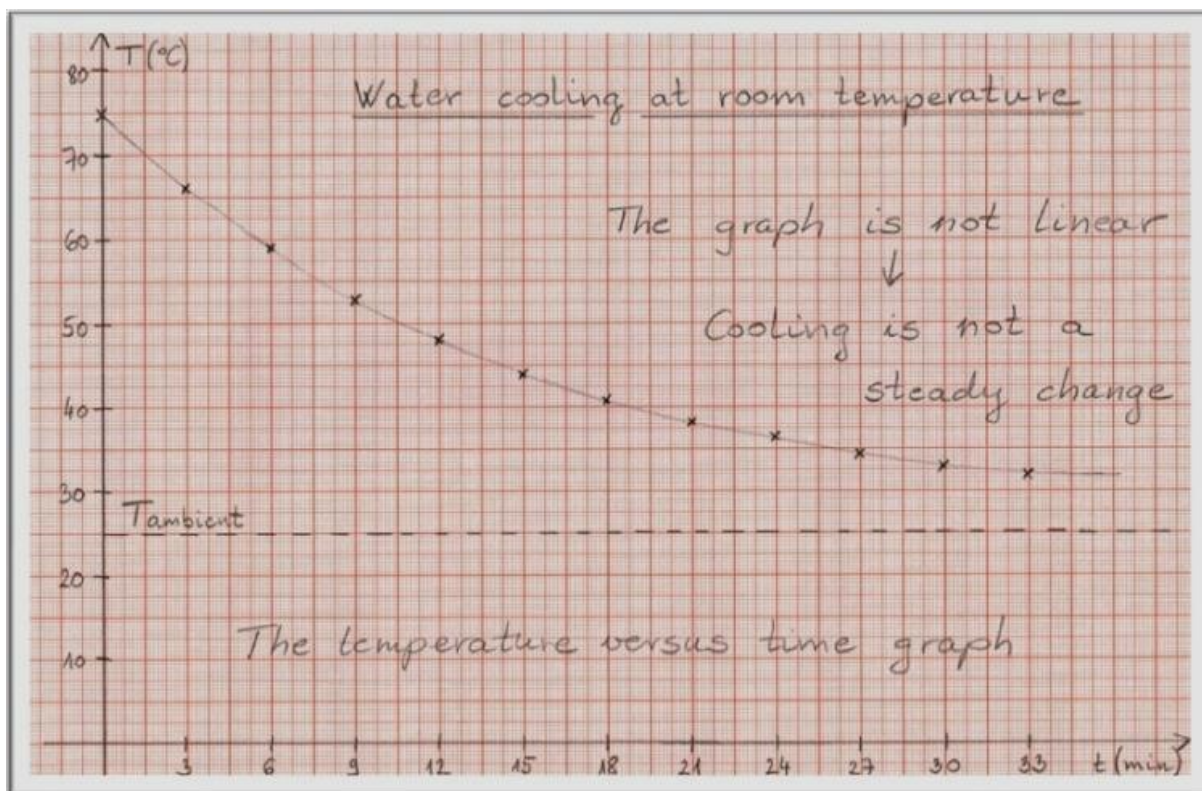 T(°C)
80
Water cooling at room temperature
70
The graph is not linear
60
↓
Cooling is not a
50
steady change
40
30
Tambient
20
The temperature versus time graph
10
3 6 9 12 15 18 21 24 27 30 33 t(min)